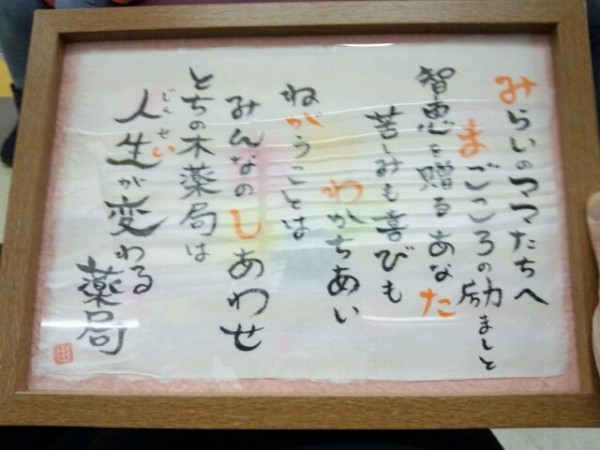 みらいのママたちへ
まごころの励ましと
智恵を贈るあなた
苦しみも喜びも
わかちあい
ねがうことは
みんなのしあわせ
とちの木薬局は
人生が変わる
じんせい
薬局